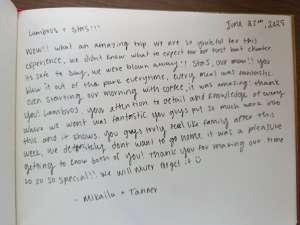 June 25th, 2025
Lambros + Stas!!!
WOW!! what an amazing trip. We are so grateful for this
experience, we didn't know what to expect for our first boat charter.
It's safe to say, we were blown away!! Stas, our man!! you
blew it out of the park everytime, every meal was fantastic.
even starting our morning with coffee, it was amazing! thank
you! Lambros, your attention to detail and knowledge of every
where we went was fantastic. you guys put so much work into
this and it shows. you guys truly feel like family after this
week, we definitely dont want to go home. it was a pleasure
getting to know both of you! Thank you for making our time
so so so special!! we will never forget it
- Mikaila + Tanner